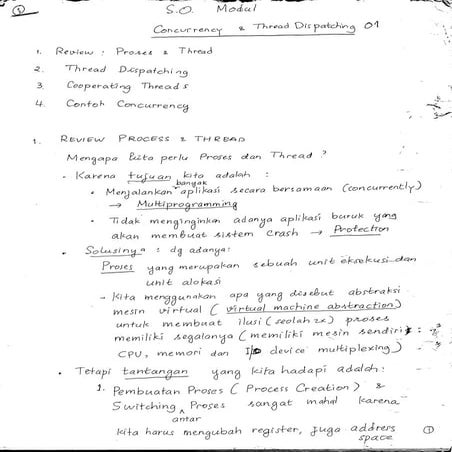 1
S.O. Modul
Concurrency & Thread Dispatching 01
1. Review : Proses & Thread
2. Thread Dispatching
3. Cooperating Threads
4. Contoh Concurrency
1. REVIEW PROCESS & THREAD
Mengapa kita perlu Proses dan Thread ?
• Karena tujuan kita adalah :
• Menjalankan banyak aplikasi secara bersamaan (concurrently)
→ Multiprogramming
• Tidak menginginkan adanya aplikasi buruk yang
akan membuat sistem crash → Protection
• Solusinya : dg adanya:
Proses yang merupakan sebuah unit eksekusi dan
unit alokasi
- Kita menggunakan apa yang disebut abstraksi
mesin virtual (virtual machine abstraction)
untuk membuat ilusi (seolah 2x) proses
memiliki segalanya (memiliki mesin sendiri :
CPU, memori dan I/O device multiplexing)
• Tetapi tantangan yang kita hadapi adalah:
1. Pembuatan Proses (Process Creation) &
Switching antar Proses sangat mahal karena
kita harus mengubah register, juga address
space
1